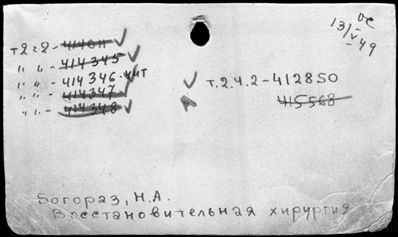 ос
13/V-49
т.2ч.2-41401 ✓
" " - 414345 ✓
" " - 414346. чит
" " - 414347 ✓
" " - 414348 ✓
✓ т.2.ч.2-412850
415568
Богораз, Н.А.
Восстановительная хирургия